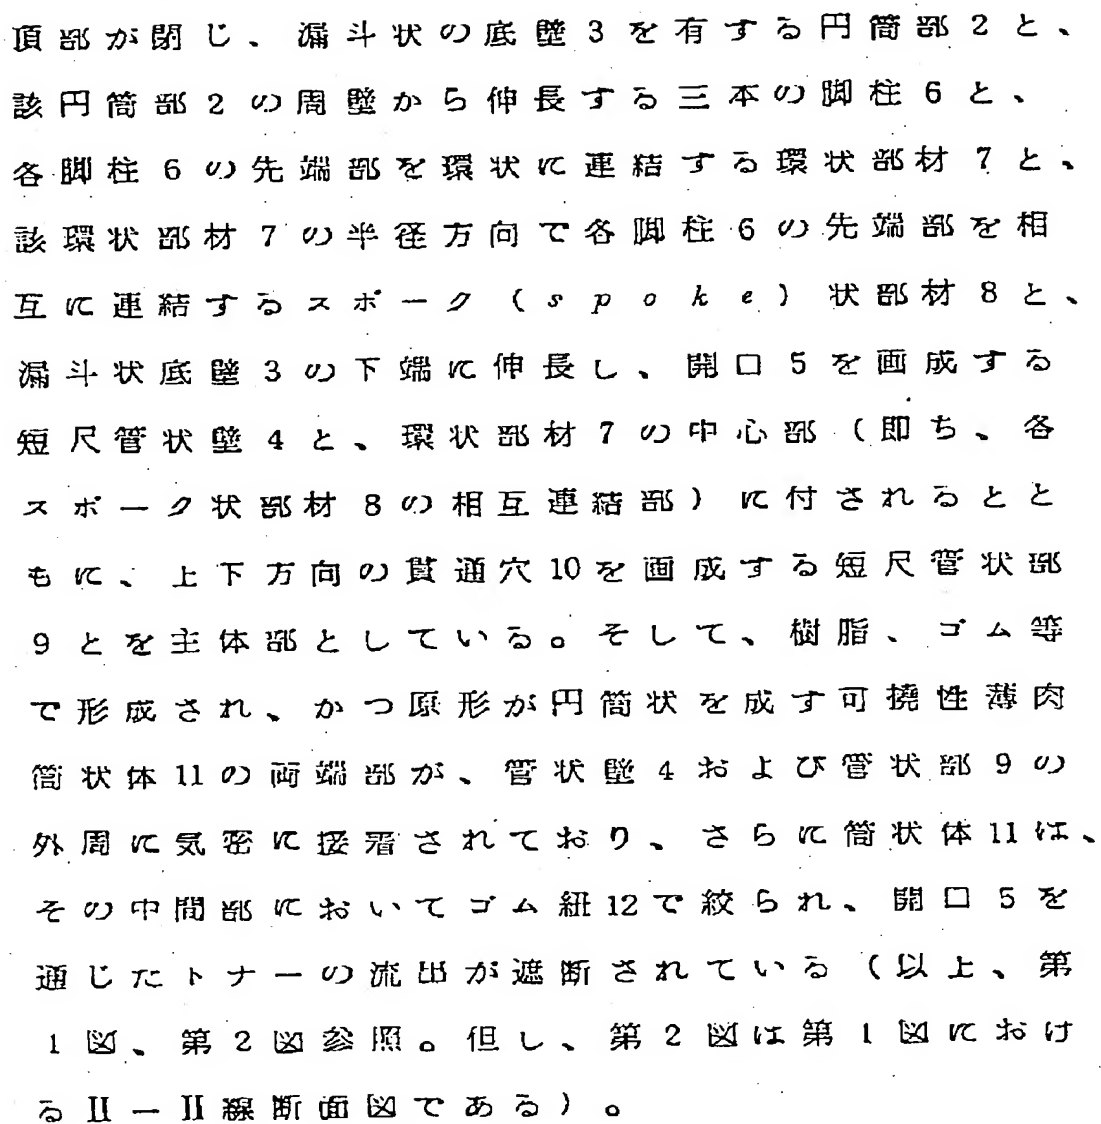 頂部が閉じ、漏斗状の底壁3を有する円筒部2と、
該円筒部2の周壁から伸長する三本の脚柱6と、
各脚柱6の先端部を環状に連結する環状部材7と、
該環状部材7の半径方向で各脚柱6の先端部を相
互に連結するスポーク(spoke)状部材8と、
漏斗状底壁3の下端に伸長し、開口5を画成する
短尺管状壁4と、環状部材7の中心部(即ち、各
スポーク状部材8の相互連結部)に付されるとと
もに、上下方向の貫通穴10を画成する短尺管状部
9とを主体部としている。そして、樹脂、ゴム等
で形成され、かつ原形が円筒状を成す可撓性薄肉
筒状体11の両端部が、管状壁4および管状部9の
外周に気密に接着されており、さらに筒状体11は、
その中間部においてゴム紐12で絞られ、開口5を
通じたトナーの流出が遮断されている(以上、第
1図、第2図参照。但し、第2図は第1図におけ
るII-II線断面図である)。